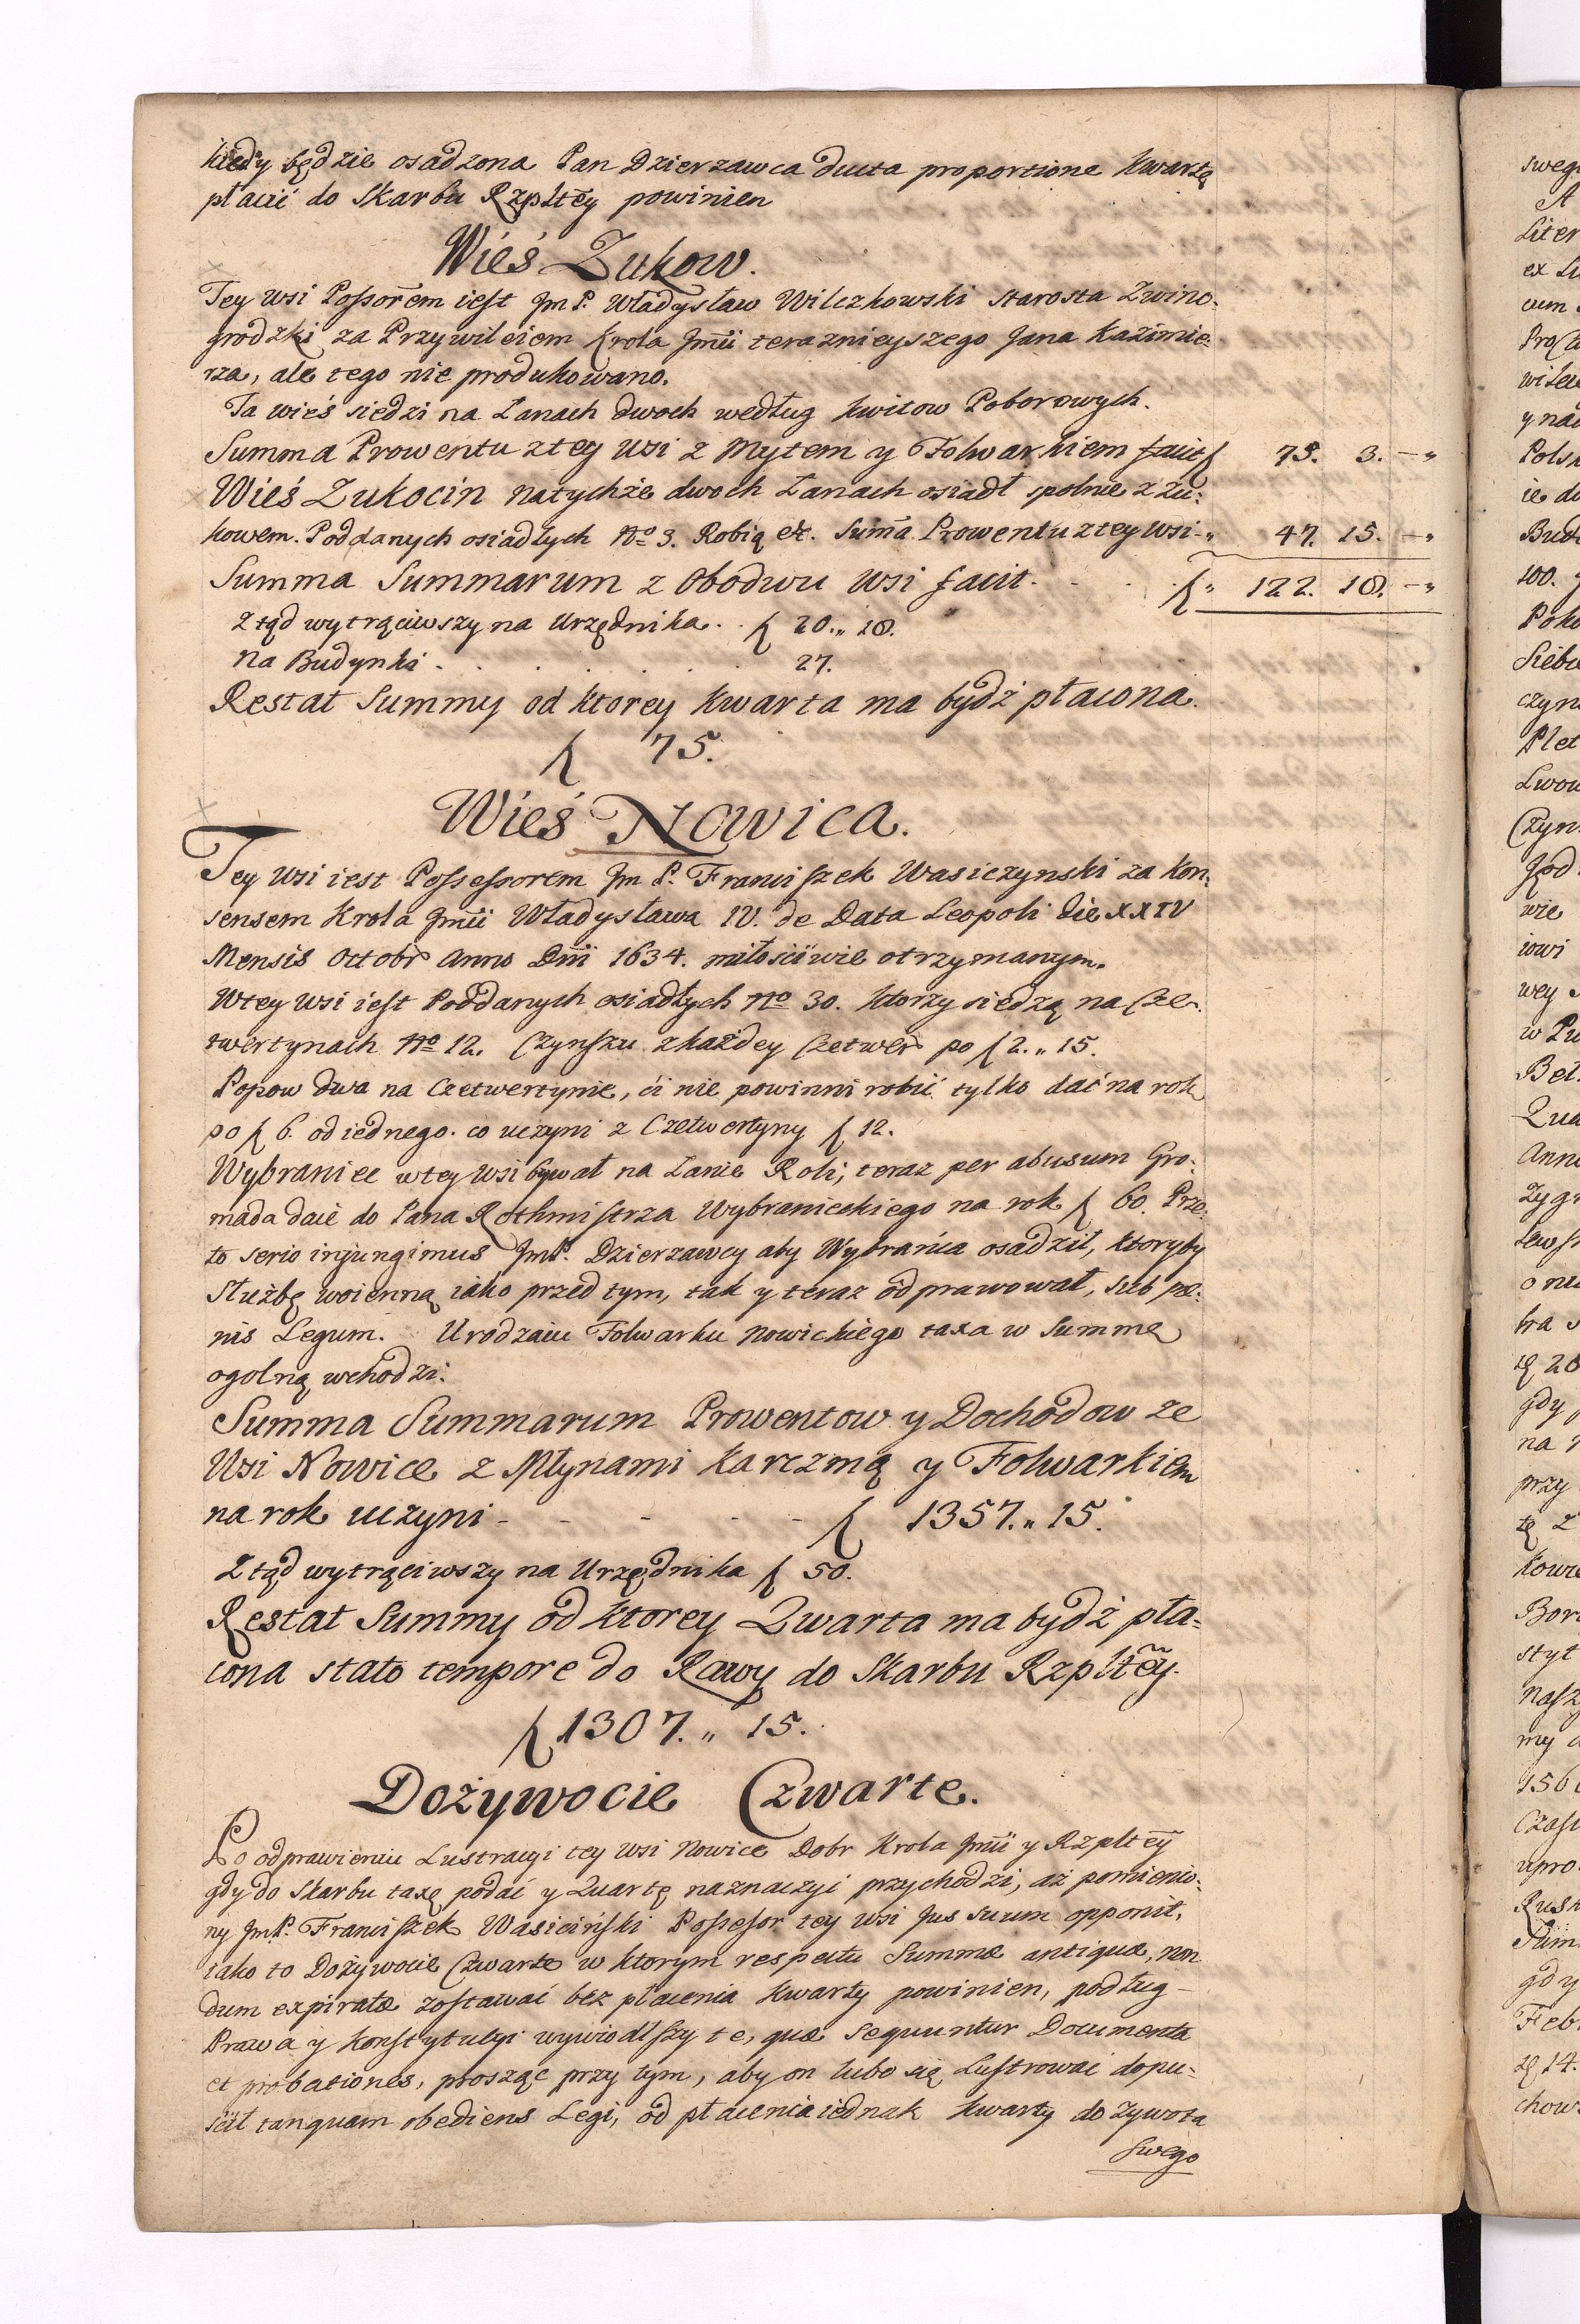 kiedy będzie osadzona Pan Dzierzawca ducta proportione kwartę
płacić do Skarbu Rzpltey powinien
Wieś Zukow.
Tey wsi Possorem iest Jm P. Władysław Wilczkowski Starosta Zwino-
grodzki za Przywileiem Krola Jmci teraznieyszego Jana Kazimie-
rza, ale tego nie produkowano.
Ta wieś siedzi na Łanach dwoch według kwitow Poborowych.
Summa Prowentu z tey Wsi z Mytem y Folwarkiem facit ƒ 75. 3. —„
Wieś Zukocin na tychże dwoch Łanach osiadł spolnie z Zu-
kowem. Poddanych osiadłych No 3. Robią etc. Suma Prowentu z tey wsi „ 47. 15. —„
Summa Summarum z Obodwu Wsi facit ƒ „ 122. 18. —„
Ztąd wytrąciwszy na Urzędnika ƒ 20.„ 18.
Na Budynki 27.
Restat Summy od ktorey kwarta ma bydź płacona.
ƒ 75.
Wieś Nowica.
Tey wsi iest Possessorem Jm P. Franciszek Wasiczynski za kon-
sensem Krola Jmci Władysława IV. de Data Leopoli die XXIV
Mensis Octobr Anno Dni 1634. miłościwie otrzymanym.
W tey wsi iest Poddanych osiadłych No 30. ktorzy siedzą na Cze-
twertynach No 12. Czynszu z każdey Czetwer po ƒ 2.„ 15.
Popow dwa na Czetwertynie, ci nie powinni robić tylko dać na rok
po ƒ 6. od iednego. co uczyni z Czetwertyny ƒ 12.
Wybraniec w tey wsi bywał na Łanie Roli, teraz per abusum Gro-
mada daie do Pana Rothmistrza Wybranieckiego na rok ƒ 60. Prze-
to serio injungimus JmP. Dzierzawcy aby Wybrańca osadził, ktoryby
Służbę woienną iako przed tym, tak y teraz odprawował, sub pæ-
nis Legum. Urodzaiu Folwarku Nowickiego taxa w Summę
ogolną wchodzi.
Summa Summarum Prowentow y Dochodow ze
Wsi Nowice z Młynami Karczmą y Folwarkiem
na rok uczyni - - - - - ƒ 1357.„ 15.
Ztąd wytrąciwszy na Urzędnika ƒ 50.
Restat Summy od ktorey Qwarta ma bydź pła-
cona stato tempore do Rawy do Skarbu Rzpltey.
ƒ 1307.„ 15.
Dożywocie Czwarte.
Po odprawieniu Lustracyi tey wsi Nowice Dobr Krola Jmci y Rzpltey
gdy do Skarbu taxę podać y Quartę naznaczyć przychodzi, aż pomienio-
ny JmP. Franciszek Wasiciński Possesor tey wsi Jus suum opponit,
iako to Dożywocie Czwarte w ktorym respectu Summæ antiquæ, non
dum expiratæ zostawać bez płacenia kwarty powinien, podług
Prawa y konstytucyi wywiodłszy te, quæ sequuntur Documenta
et probationes, prosząc przy tym, aby on lubo się Lustrować dopu-
ścił tanquam obediens Legi, od płacenia iednak kwarty do żywota
swego